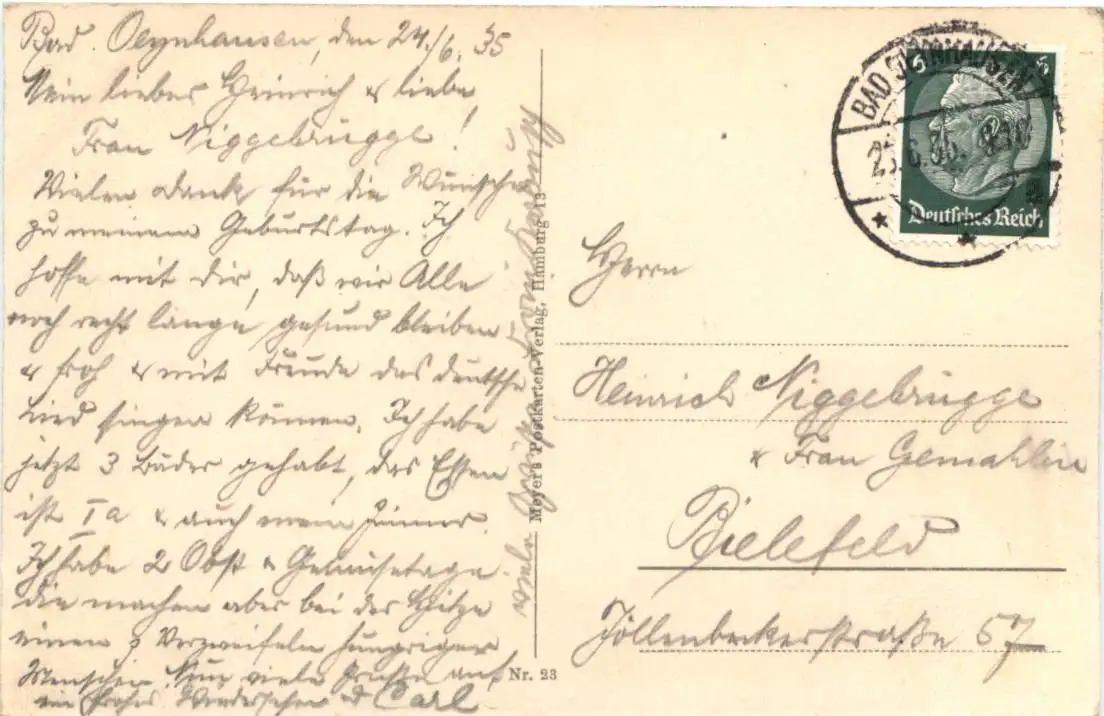 Bad. Oeynhausen, den 24./6. 35
Mein lieber Heinrich & liebe
Frau Niggebrügge!
Vielen Dank für die Wünsche
zu meinem Geburtstag. Ich
hoffe mit dir, daß wir Alle
noch recht lange gesund bleiben
& froh & mit Freude das deutsche
Lied singen können. Ich habe
jetzt 3 Bäder gehabt, das Essen
ist Ia & auch mein Zimmer
Ich habe 2 Obst & Gemüsetage.
die machen aber bei der Hitze
einen z Verzweifeln hungrigen
Menschen. Nun viele Grüße auf
ein frohes Wiedersehen Carl
viele Grüße von
Meyer's Postkarten-Verlag, Hamburg 13
Nr. 23
BAD OEYNHAUSEN
25.6.35.
6 6
Deutsches Reich
Herrn
Heinrich Niggebrügge
& Frau Gemahlin
Bielefeld
Jöllenbeckerstraße 57